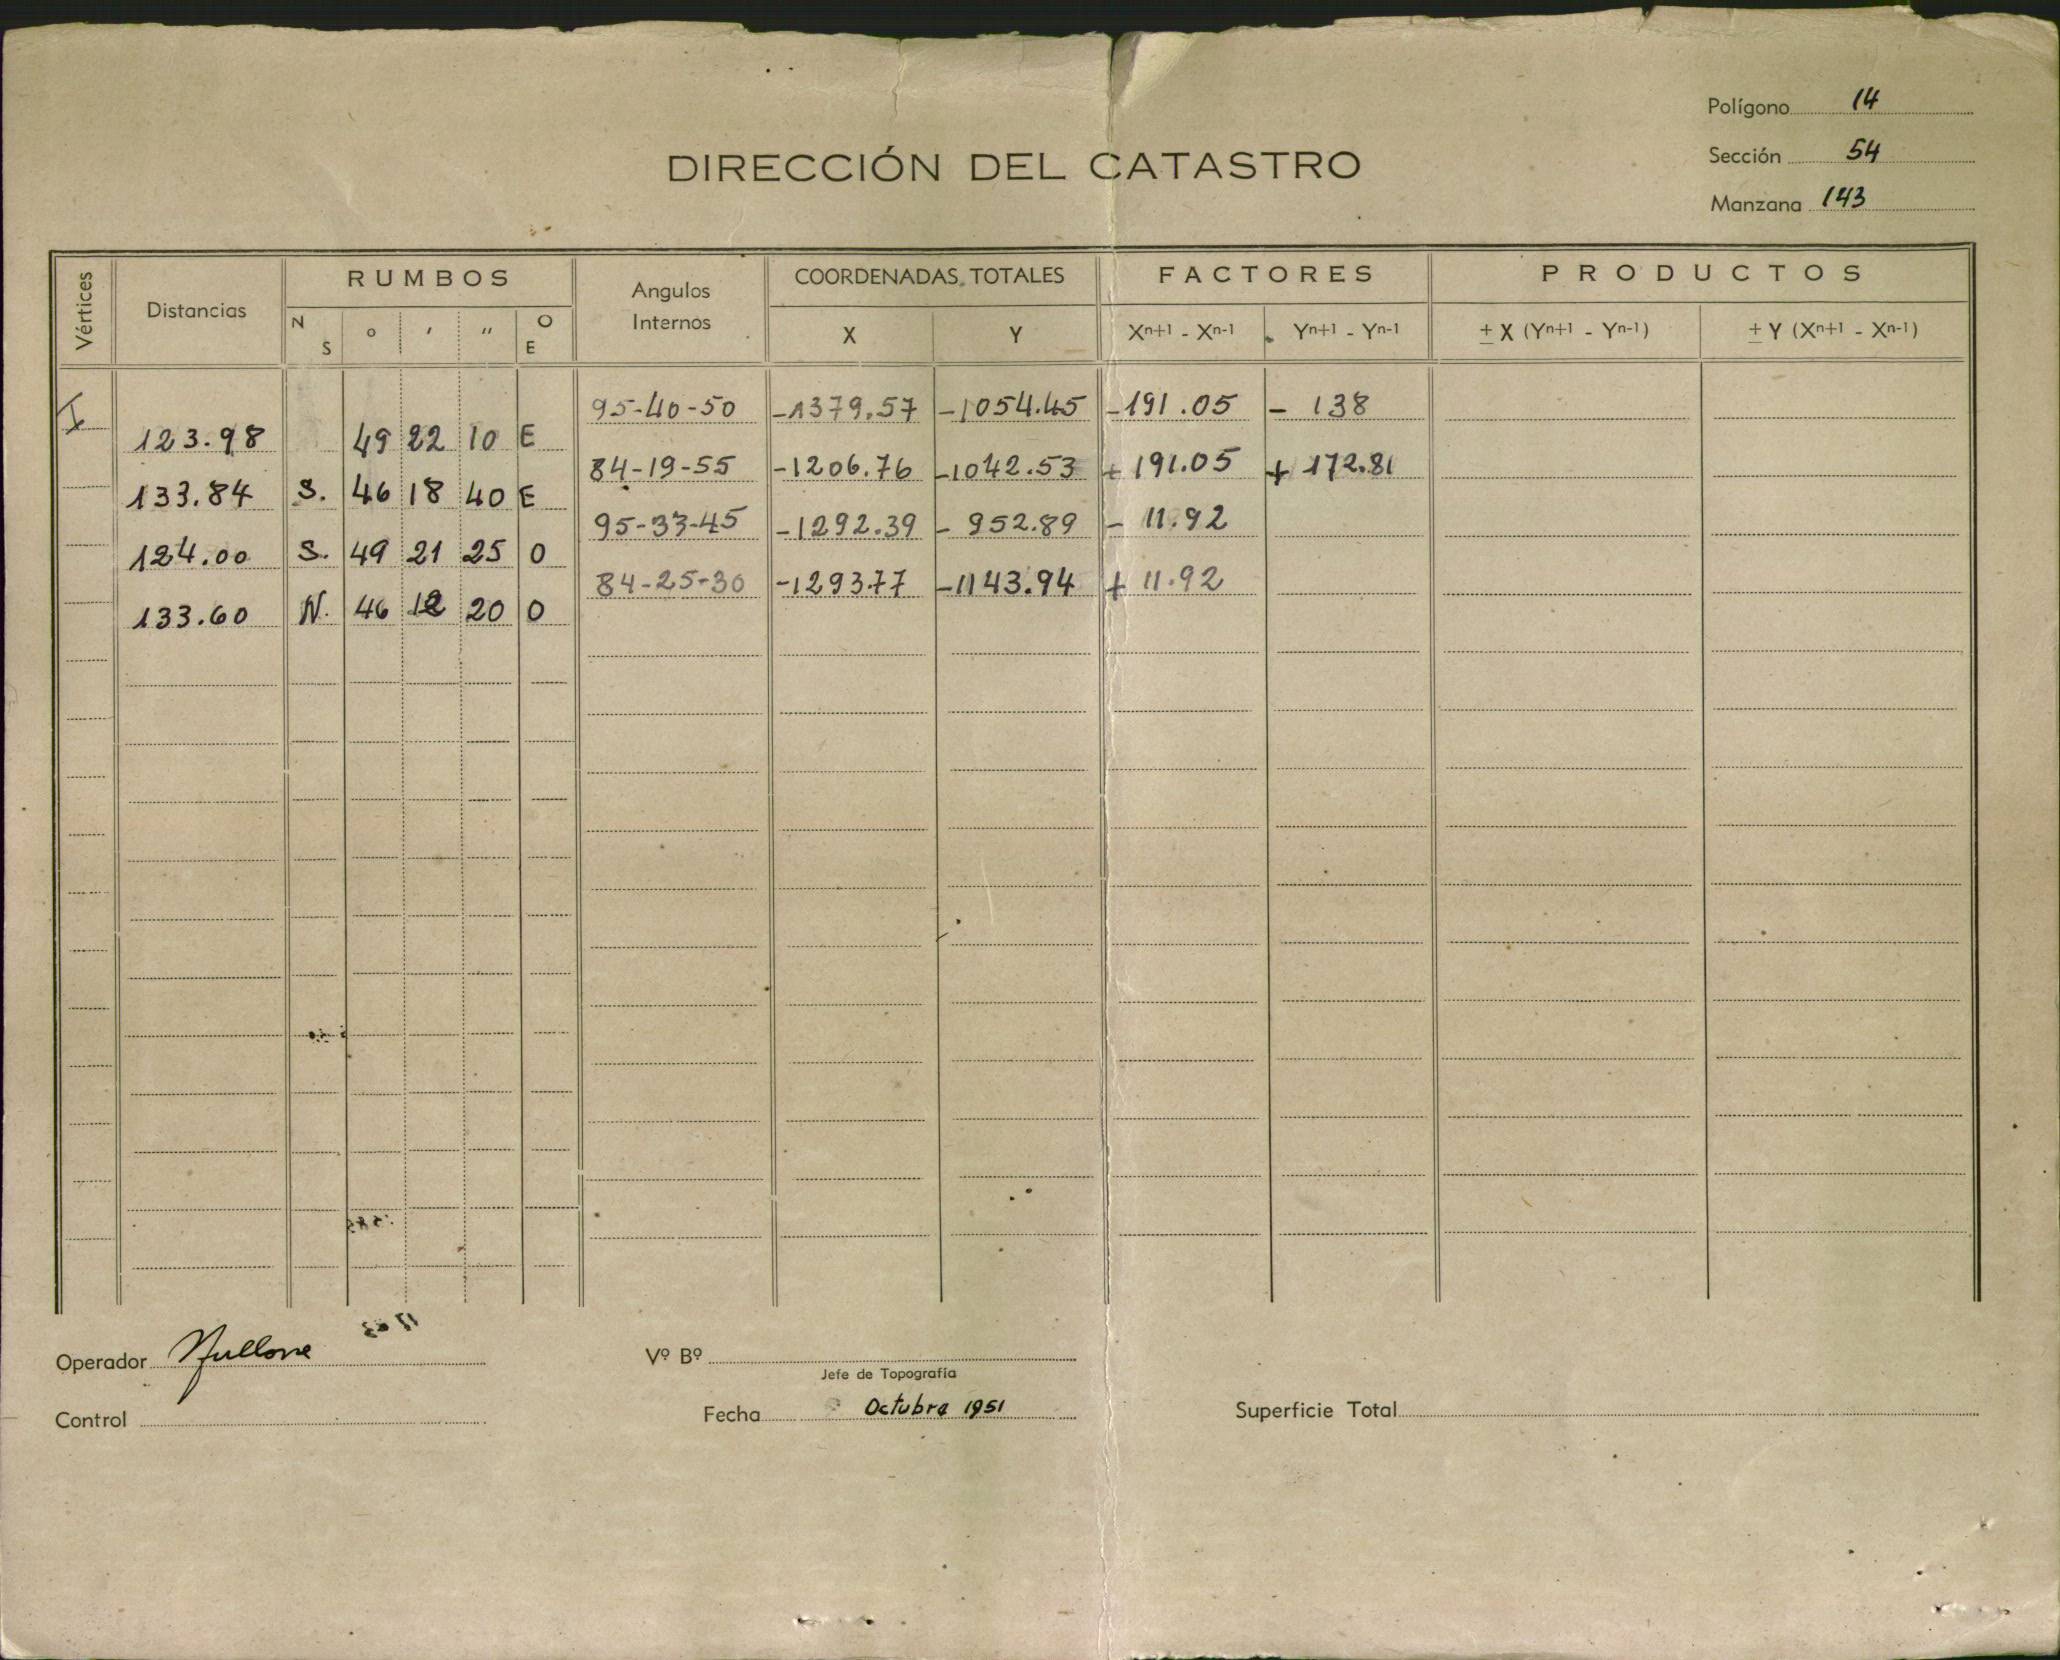 Polígono 14
Sección 54
Manzana 143
DIRECCIÓN DEL CATASTRO
Vértices Distancias RUMBOS Angulos Internos COORDENADAS TOTALES FACTORES PRODUCTOS
N S o ' '' O E X Y Xn+1 - Xn-1 Yn+1 - Yn-1 ± X (Yn+1 - Yn-1) ± Y (Xn+1 - Xn-1)
I 95-40-50 -1379.57 -1054.45 -191.05 - 138
123.98 49 22 10 E
84-19-55 -1206.76 -1042.53 +191.05 + 172.81
133.84 S. 46 18 40 E
95-33-45 -1292.39 - 952.89 - 11.92
124.00 S. 49 21 25 O
84-25-30 -1293.77 -1143.94 + 11.92
133.60 N. 46 12 20 O
Operador
Vº Bº
Jefe de Topografía
Control
Fecha Octubre 1951
Superficie Total